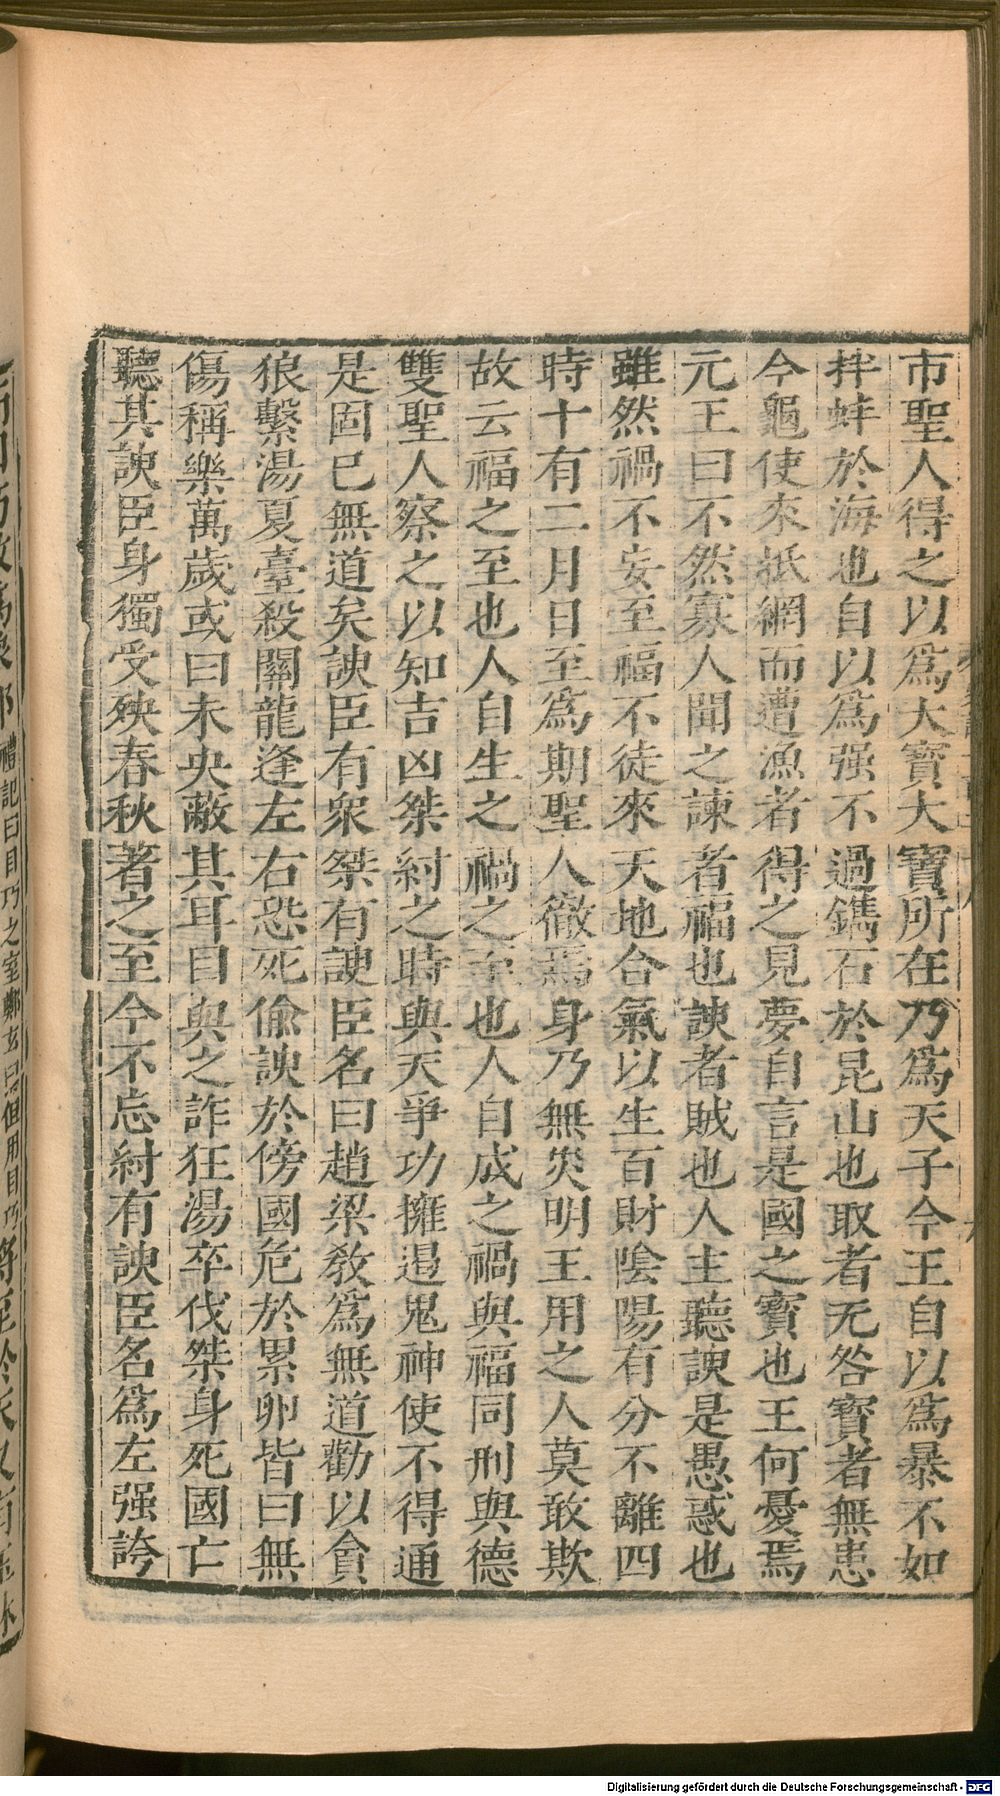 市聖人得之以爲大寶大寶所在乃爲天子今王自以爲暴不如
拌蚌於海也自以爲强不過鐫石於昆山也取者无咎寶者無患
今龜使來抵網而遭漁者得之見夢自言是國之寶也王何憂焉
元王曰不然寡人聞之諫者福也諛者賊也人主聽諛是愚惑也
雖然禍不妄至福不徒來天地合氣以生百財陰陽有分不離四
時十有二月日至爲期聖人徹焉身乃無災明王用之人莫敢欺
故云福之至也人自生之禍之至也人自成之禍與福同刑與德
雙聖人察之以知吉凶桀紂之時與天爭功擁遏鬼神使不得通
是固已無道矣諛臣有衆桀有諛臣名曰趙梁敎爲無道勸以貪
狼繫湯夏臺殺關龍逢左右恐死偷諛於傍國危於累卵皆曰無
傷稱樂萬歲或曰未央蔽其耳目與之詐狂湯卒伐桀身死國亡
聽其諛臣身獨受殃春秋著之至今不忘紂有諛臣名爲左强誇
禮記曰目巧之室鄭玄曰但用目巧
Digitalisierung gefördert durch die Deutsche Forschungsgemeinschaft - DFG